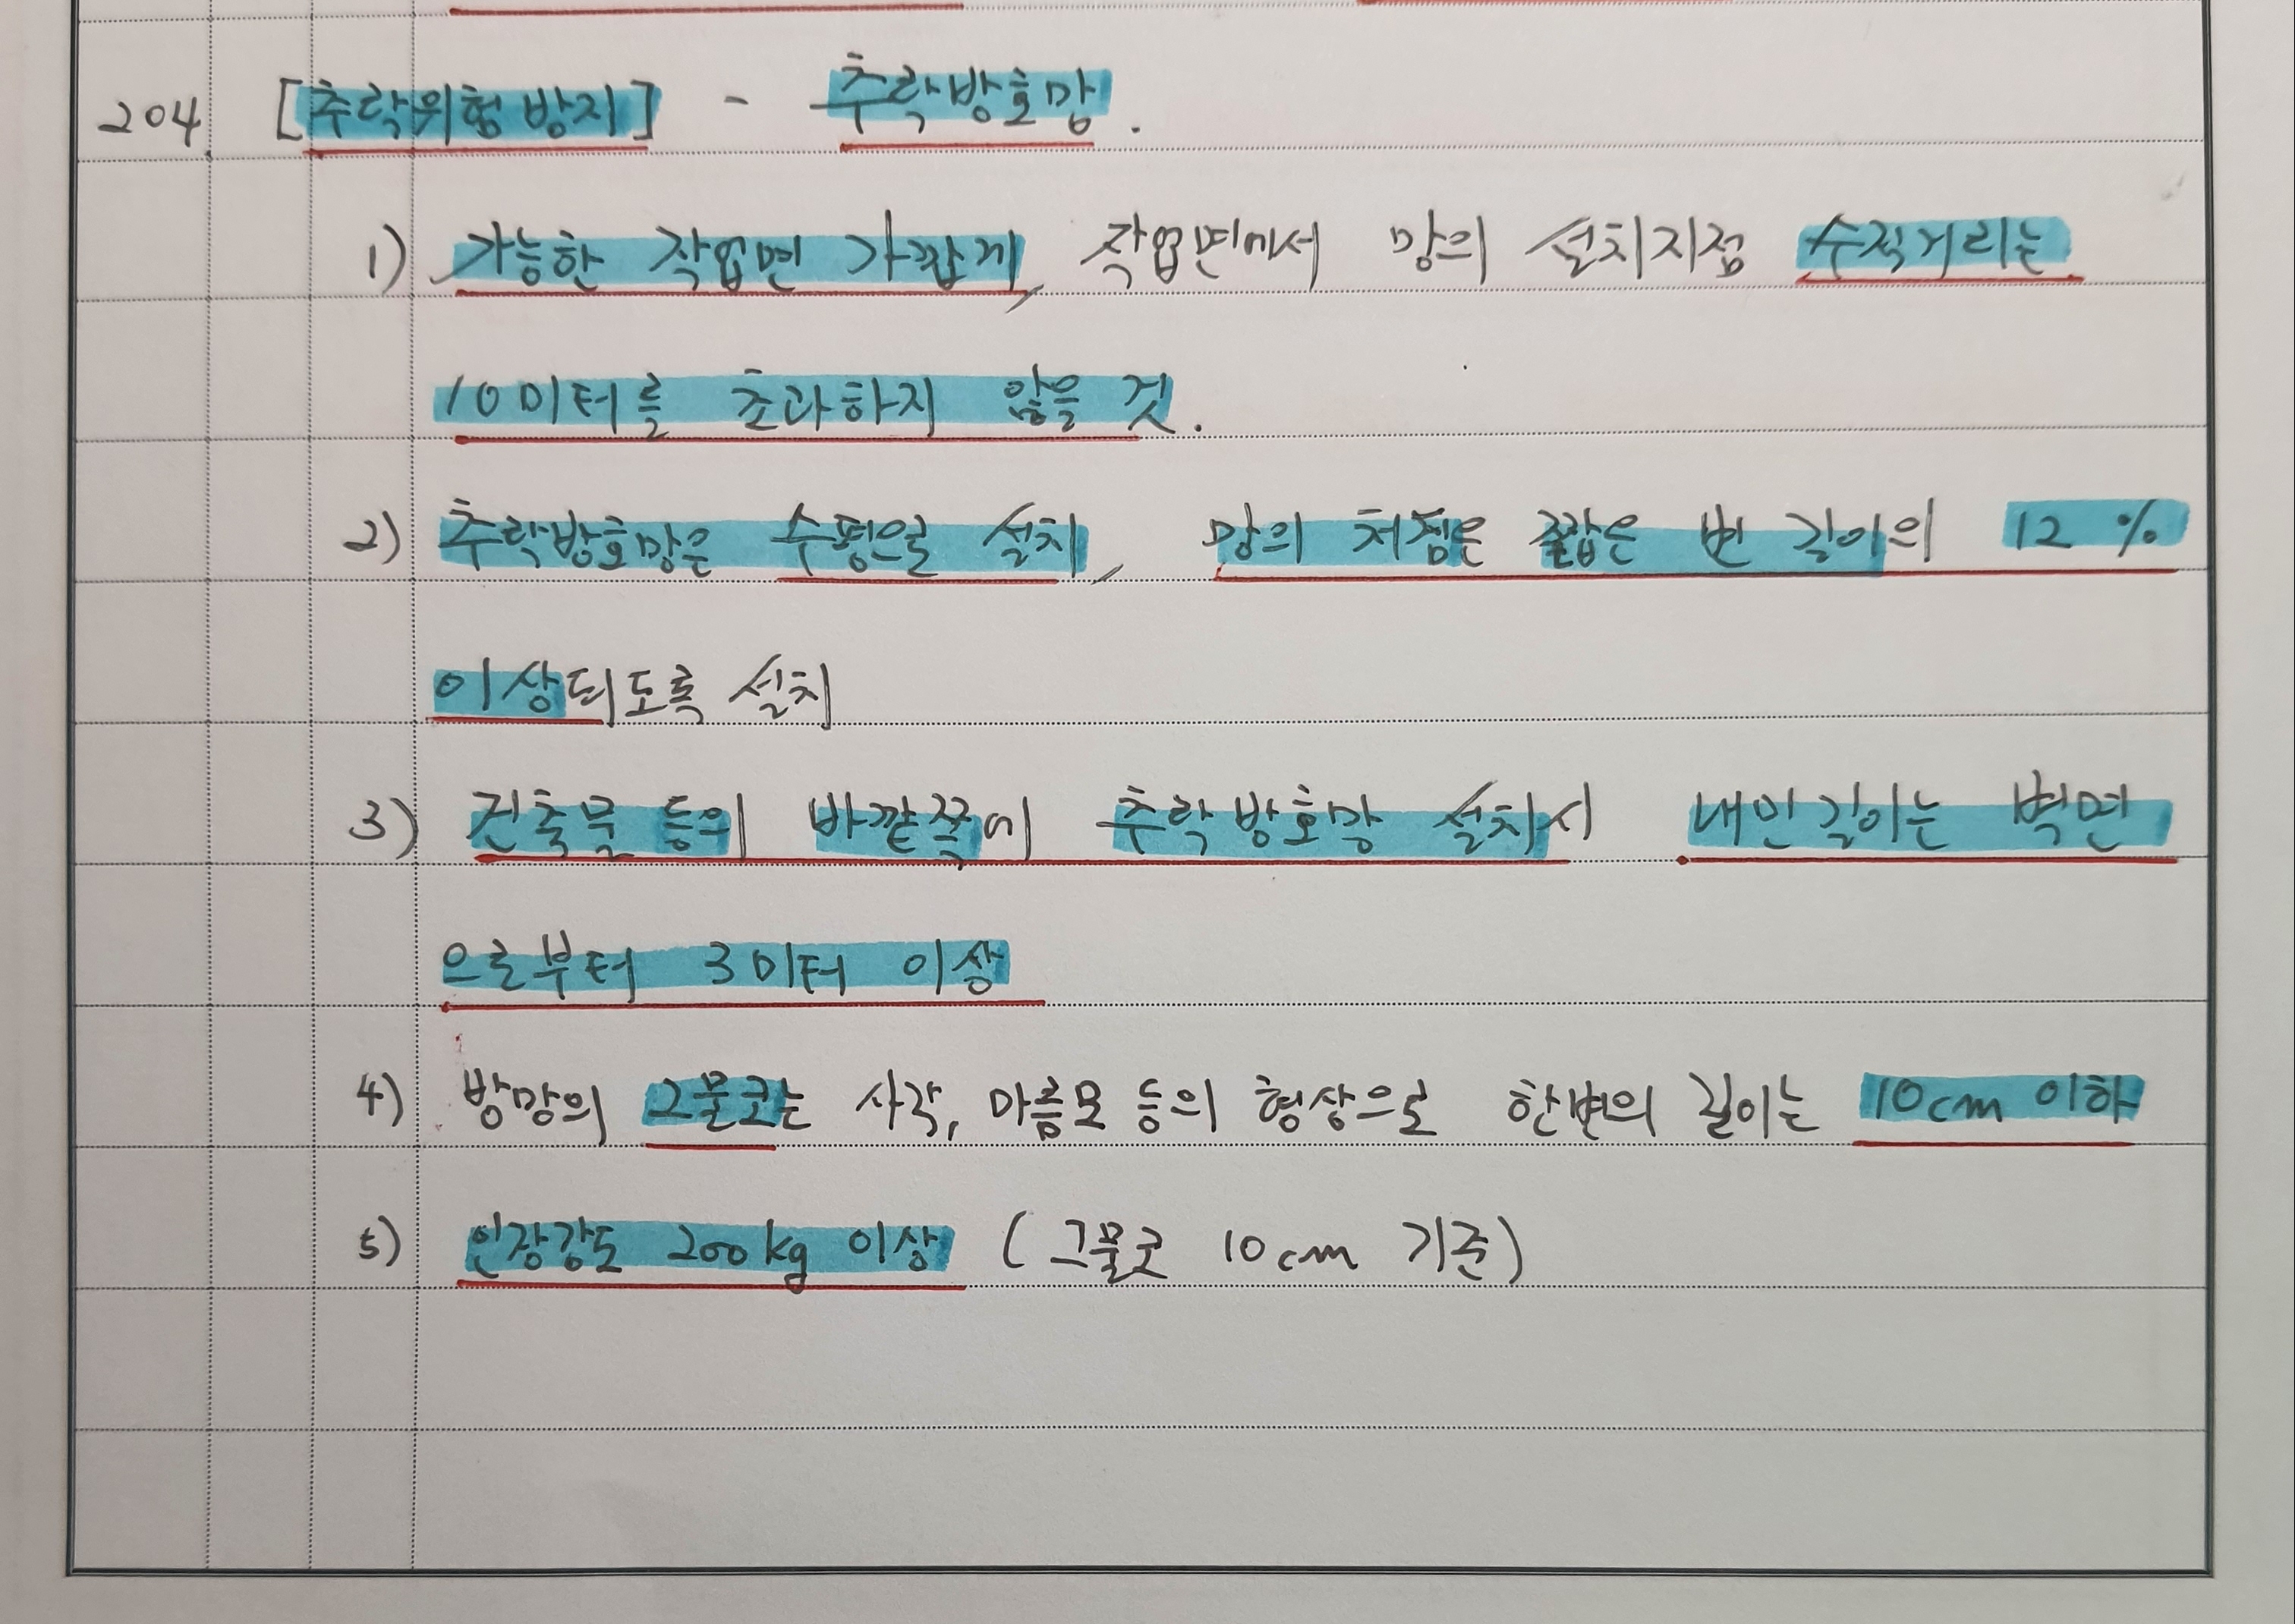 204. [추락위험방지] - 추락방호망.
1) 가능한 작업면 가깝게, 작업면에서 망의 설치지점 수직거리는
10미터를 초과하지 않을 것.
2) 추락방호망은 수평으로 설치, 망의 처짐은 짧은 변 길이의 12%
이상되도록 설치
3) 건축물 등의 바깥쪽에 추락방호망 설치시 내민길이는 벽면
으로부터 3미터 이상
4) 방망의 그물코는 사각, 마름모 등의 형상으로 한변의 길이는 10cm 이하
5) 인장강도 200kg 이상 (그물코 10cm 기준)